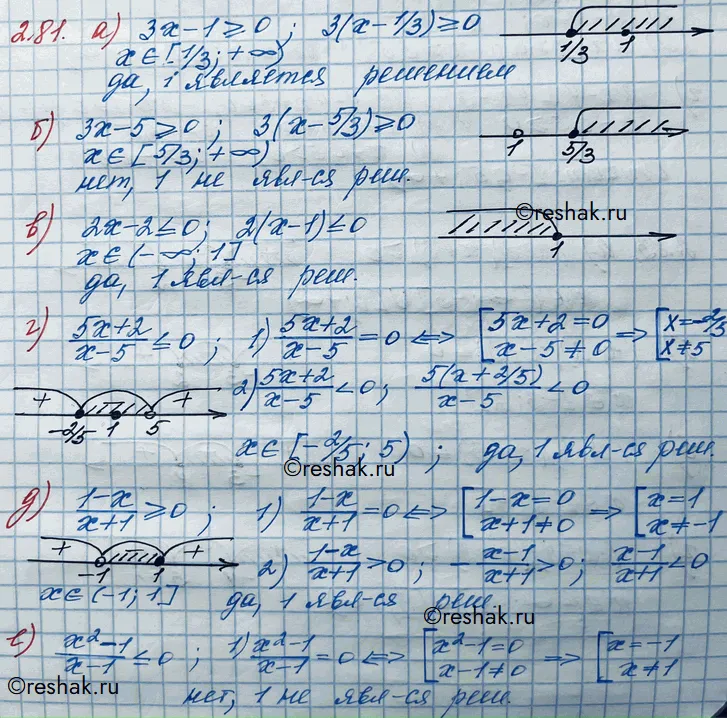 2.81. а) 3x-1≥0; 3(x-1/3)≥0
x∈[1/3; +∞)
1/3 1
да, 1 является решением
б) 3x-5≥0; 3(x-5/3)≥0
x∈[5/3; +∞)
1 5/3
нет, 1 не явл-ся реш.
©reshak.ru
в) 2x-2≤0; 2(x-1)≤0
x∈(-∞; 1]
1
да, 1 явл-ся реш.
г) (5x+2)/(x-5)≤0; 1) (5x+2)/(x-5)=0 ⇔ [5x+2=0 x-5≠0 ⇒ [x=-2/5 x≠5
2) (5x+2)/(x-5)<0; 5(x+2/5)/(x-5)<0
+ +
-2/5 1 5
x∈[-2/5; 5); да, 1 явл-ся реш.
©reshak.ru
д) (1-x)/(x+1)≥0; 1) (1-x)/(x+1)=0 ⇔ [1-x=0 x+1≠0 ⇒ [x=1 x≠-1
+ +
-1 1
2) (1-x)/(x+1)>0; -(x-1)/(x+1)>0; (x-1)/(x+1)<0
x∈(-1; 1] да, 1 явл-ся реш.
©reshak.ru
е) (x²-1)/(x-1)≤0; 1) (x²-1)/(x-1)=0 ⇔ [x²-1=0 x-1≠0 ⇒ [x=-1 x≠1
©reshak.ru
нет, 1 не явл-ся реш.